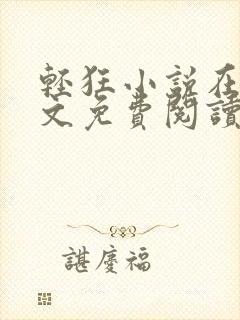 輕狂小說在
文免費閱讀
諶慶福